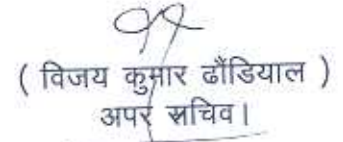 ( विजय कुमार ढौंडियाल )
अपर सचिव।